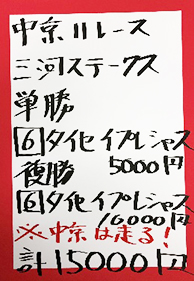 中京11レース
三河ステークス
単勝
6タイセイプレシャス
5000円
複勝
6タイセイプレシャス
10000円
※中京は走る!
計15000円